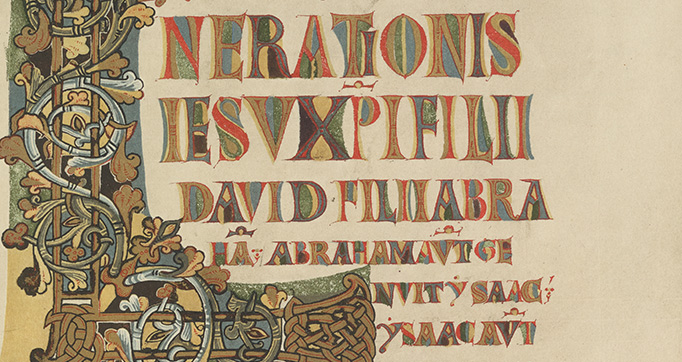 NERATIONIS
IESU XPI FILII
DAVID · FILII ABRA
HA: ABRAHAM AUT GE
NUIT YSAAC:
YSAAC AUT